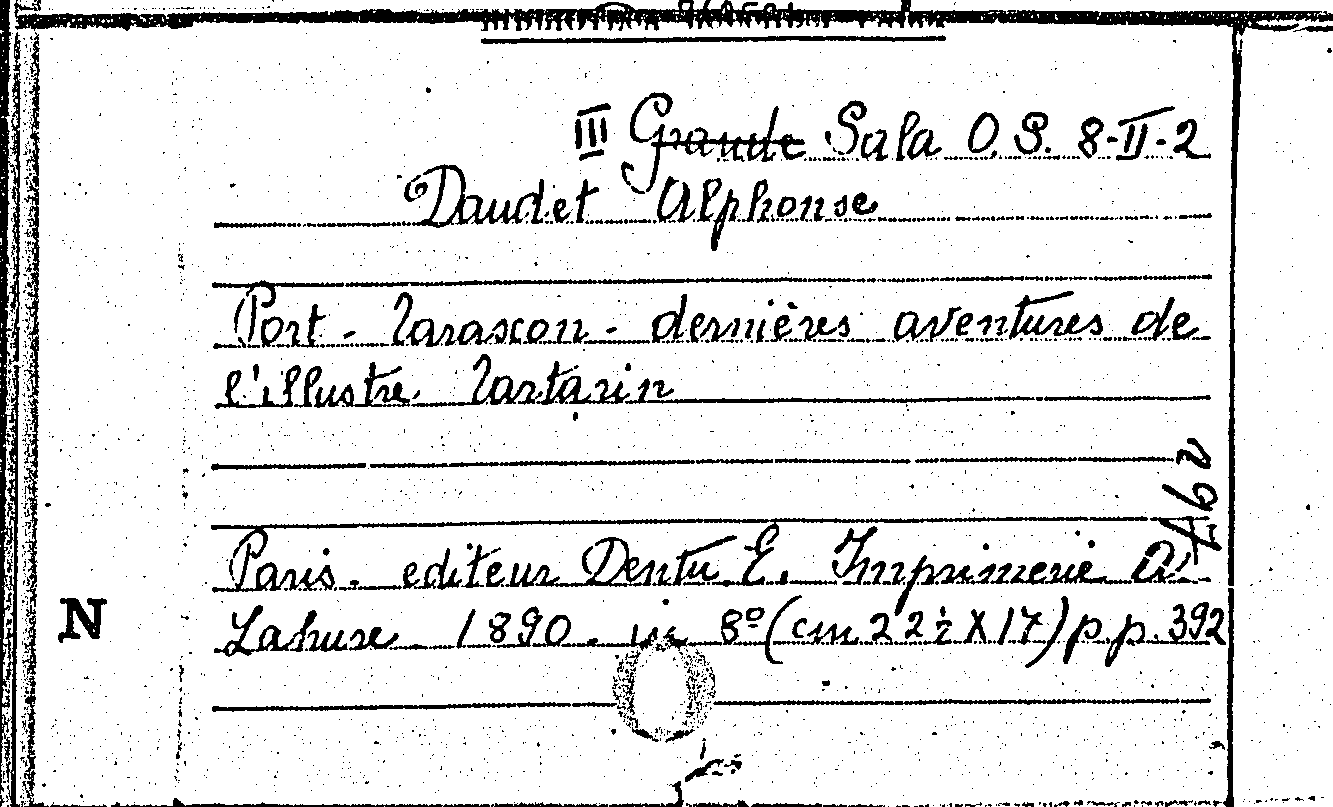 III Grande Sala O.S. 8-II-2
Daudet Alphonse
Port-Tarascon - dernières aventures de
l'illustre Tartarin
Paris. editeur Dentu E. Imprimerie A.
Lahure 1890 - in 8º (cm 22½ X 17) p.p. 392
N